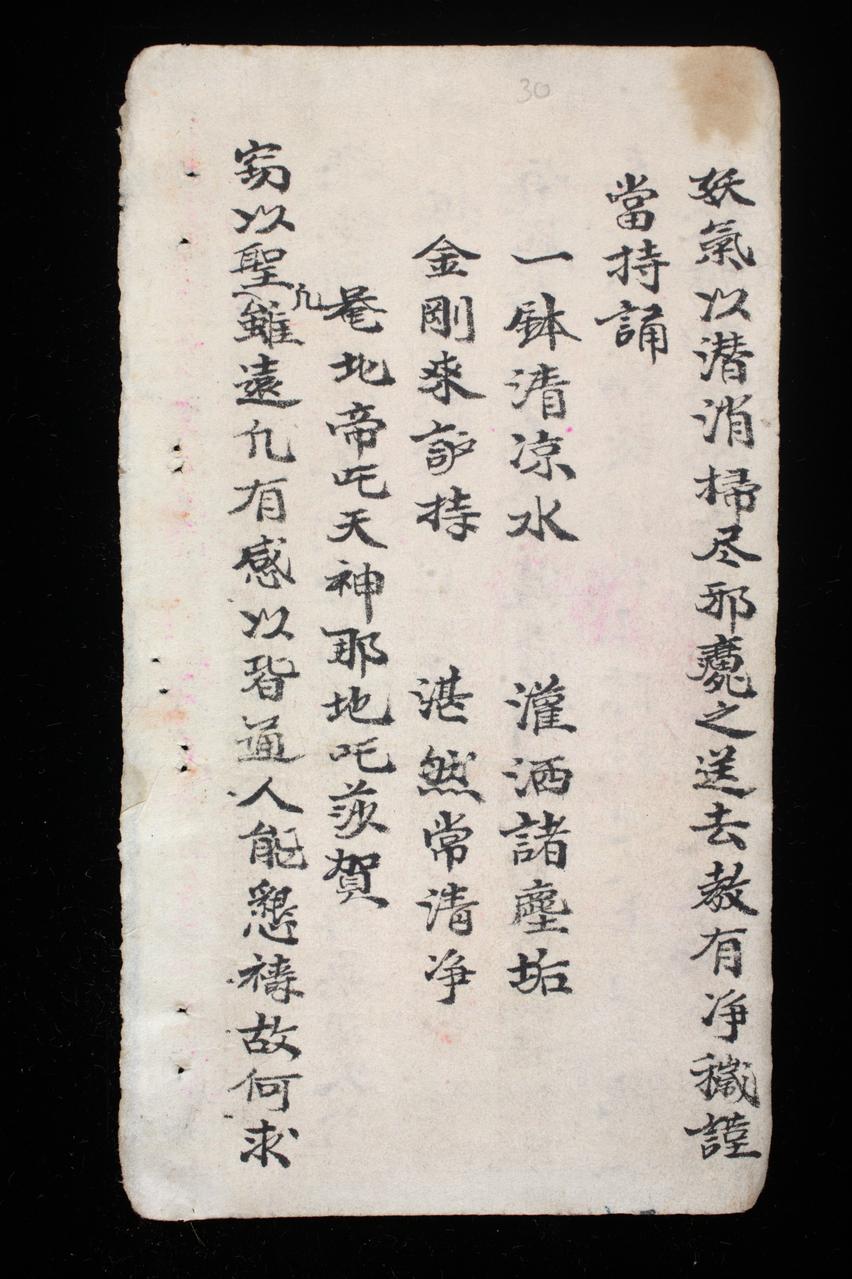 30
妖氣以潜消掃尽邪魔之送去教有净穢謹
當持誦
一鉢清凉水　灌洒諸塵垢
金剛来敬持　湛然常清净
菴地帝吒天神那地吒莎賀
窃以聖凢雖遠凢有感以皆通人能懇祷故何求